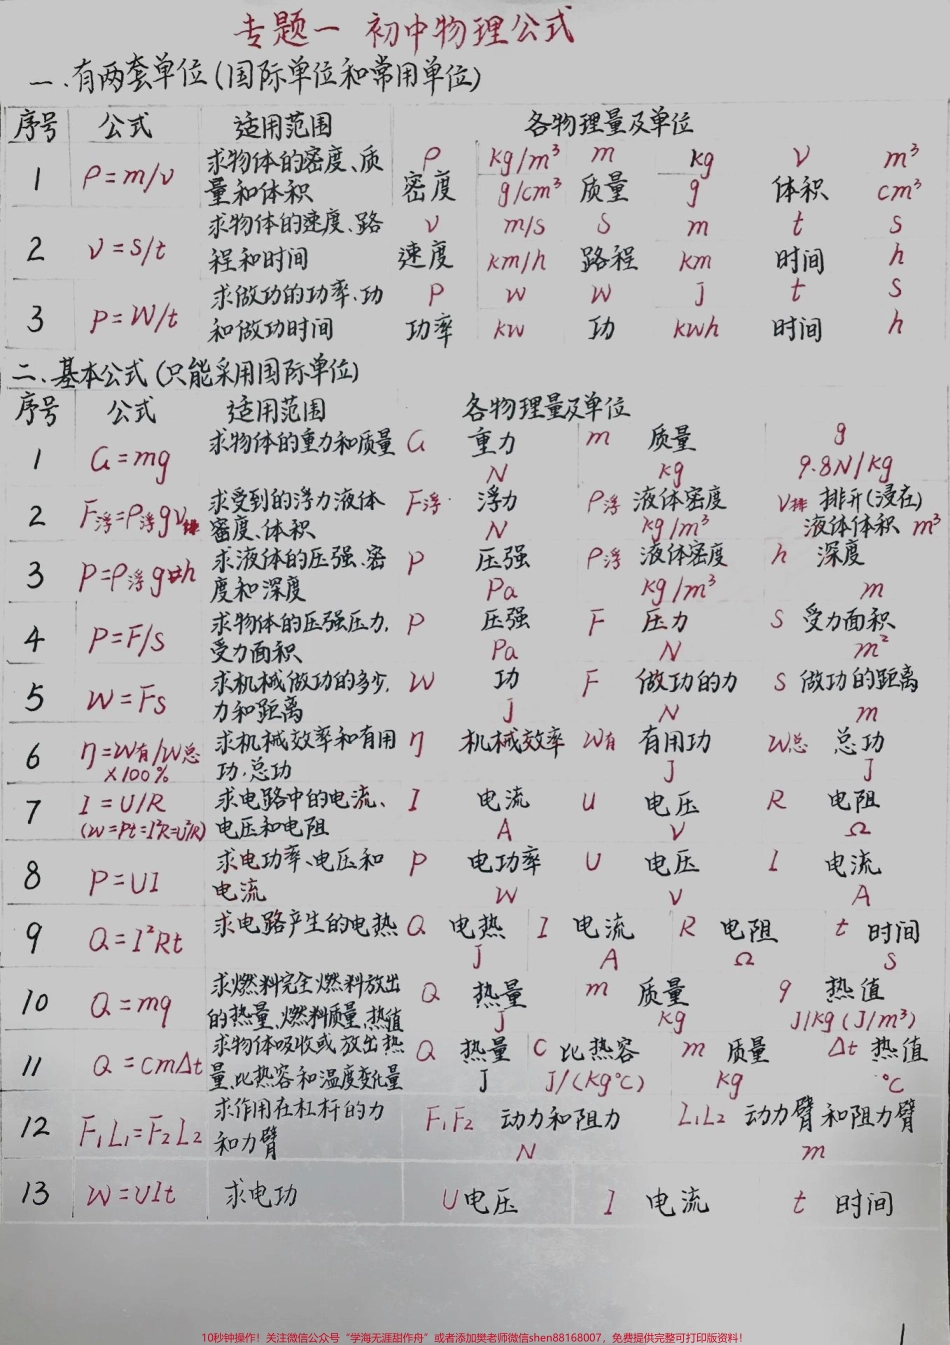 专题一 初中物理公式
一、有两套单位(国际单位和常用单位)
序号 公式 适用范围 各物理量及单位
1 ρ=m/v 求物体的密度、质 ρ kg/m³ m kg v m³
量和体积 密度 g/cm³ 质量 g 体积 cm³
2 v=s/t 求物体的速度、路 v m/s S m t s
程和时间 速度 km/h 路程 km 时间 h
3 P=W/t 求做功的功率、功 P w W J t s
和做功时间 功率 kw 功 kwh 时间 h
二、基本公式(只能采用国际单位)
序号 公式 适用范围 各物理量及单位
1 G=mg 求物体的重力和质量 G 重力 m 质量 g
N kg 9.8N/kg
2 F浮=ρ浮gv排 求受到的浮力液体 F浮 浮力 ρ浮 液体密度 v排 排开(浸在)
密度、体积 N kg/m³ 液体体积 m³
3 P=ρ浮gh 求液体的压强、密 P 压强 ρ浮 液体密度 h 深度
度和深度 Pa kg/m³ m
4 P=F/S 求物体的压强压力, P 压强 F 压力 S 受力面积
受力面积 Pa N m²
5 W=Fs 求机械做功的多少, W 功 F 做功的力 S 做功的距离
力和距离 J N m
6 η=W有/W总 求机械效率和有用 η 机械效率 W有 有用功 W总 总功
×100% 功、总功 J J
7 I=U/R 求电路中的电流、 I 电流 U 电压 R 电阻
(W=Pt=I²R=U²/R) 电压和电阻 A V Ω
8 P=UI 求电功率、电压和 P 电功率 U 电压 I 电流
电流 W V A
9 Q=I²Rt 求电路产生的电热 Q 电热 I 电流 R 电阻 t 时间
J A Ω S
10 Q=mq 求燃料完全燃料放出 Q 热量 m 质量 q 热值
的热量、燃料质量、热值 J kg J/kg(J/m³)
11 Q=cmΔt 求物体吸收或放出热 Q 热量 C 比热容 m 质量 Δt 热值
量、比热容和温度变化量 J J/(kg℃) kg ℃
12 F₁L₁=F₂L₂ 求作用在杠杆的力 F₁F₂ 动力和阻力 L₁L₂ 动力臂和阻力臂
和力臂 N m
13 W=UIt 求电功 U 电压 I 电流 t 时间
10秒钟操作!关注微信公众号“学海无涯甜作舟”或者添加樊老师微信shen88168007,免费提供完整可打印版资料!
1